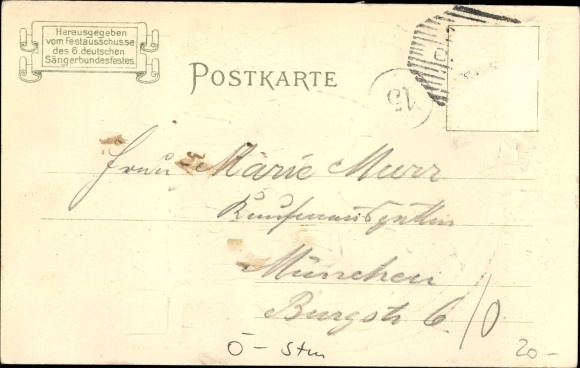 Herausgegeben
vom Festausschusse
des 6. deutschen
Sängerbundesfestes.
POSTKARTE
15
Frau Marie Murr
Kaufmannsgattin
München
Burgstr 6/0
Ö - Stm
20-